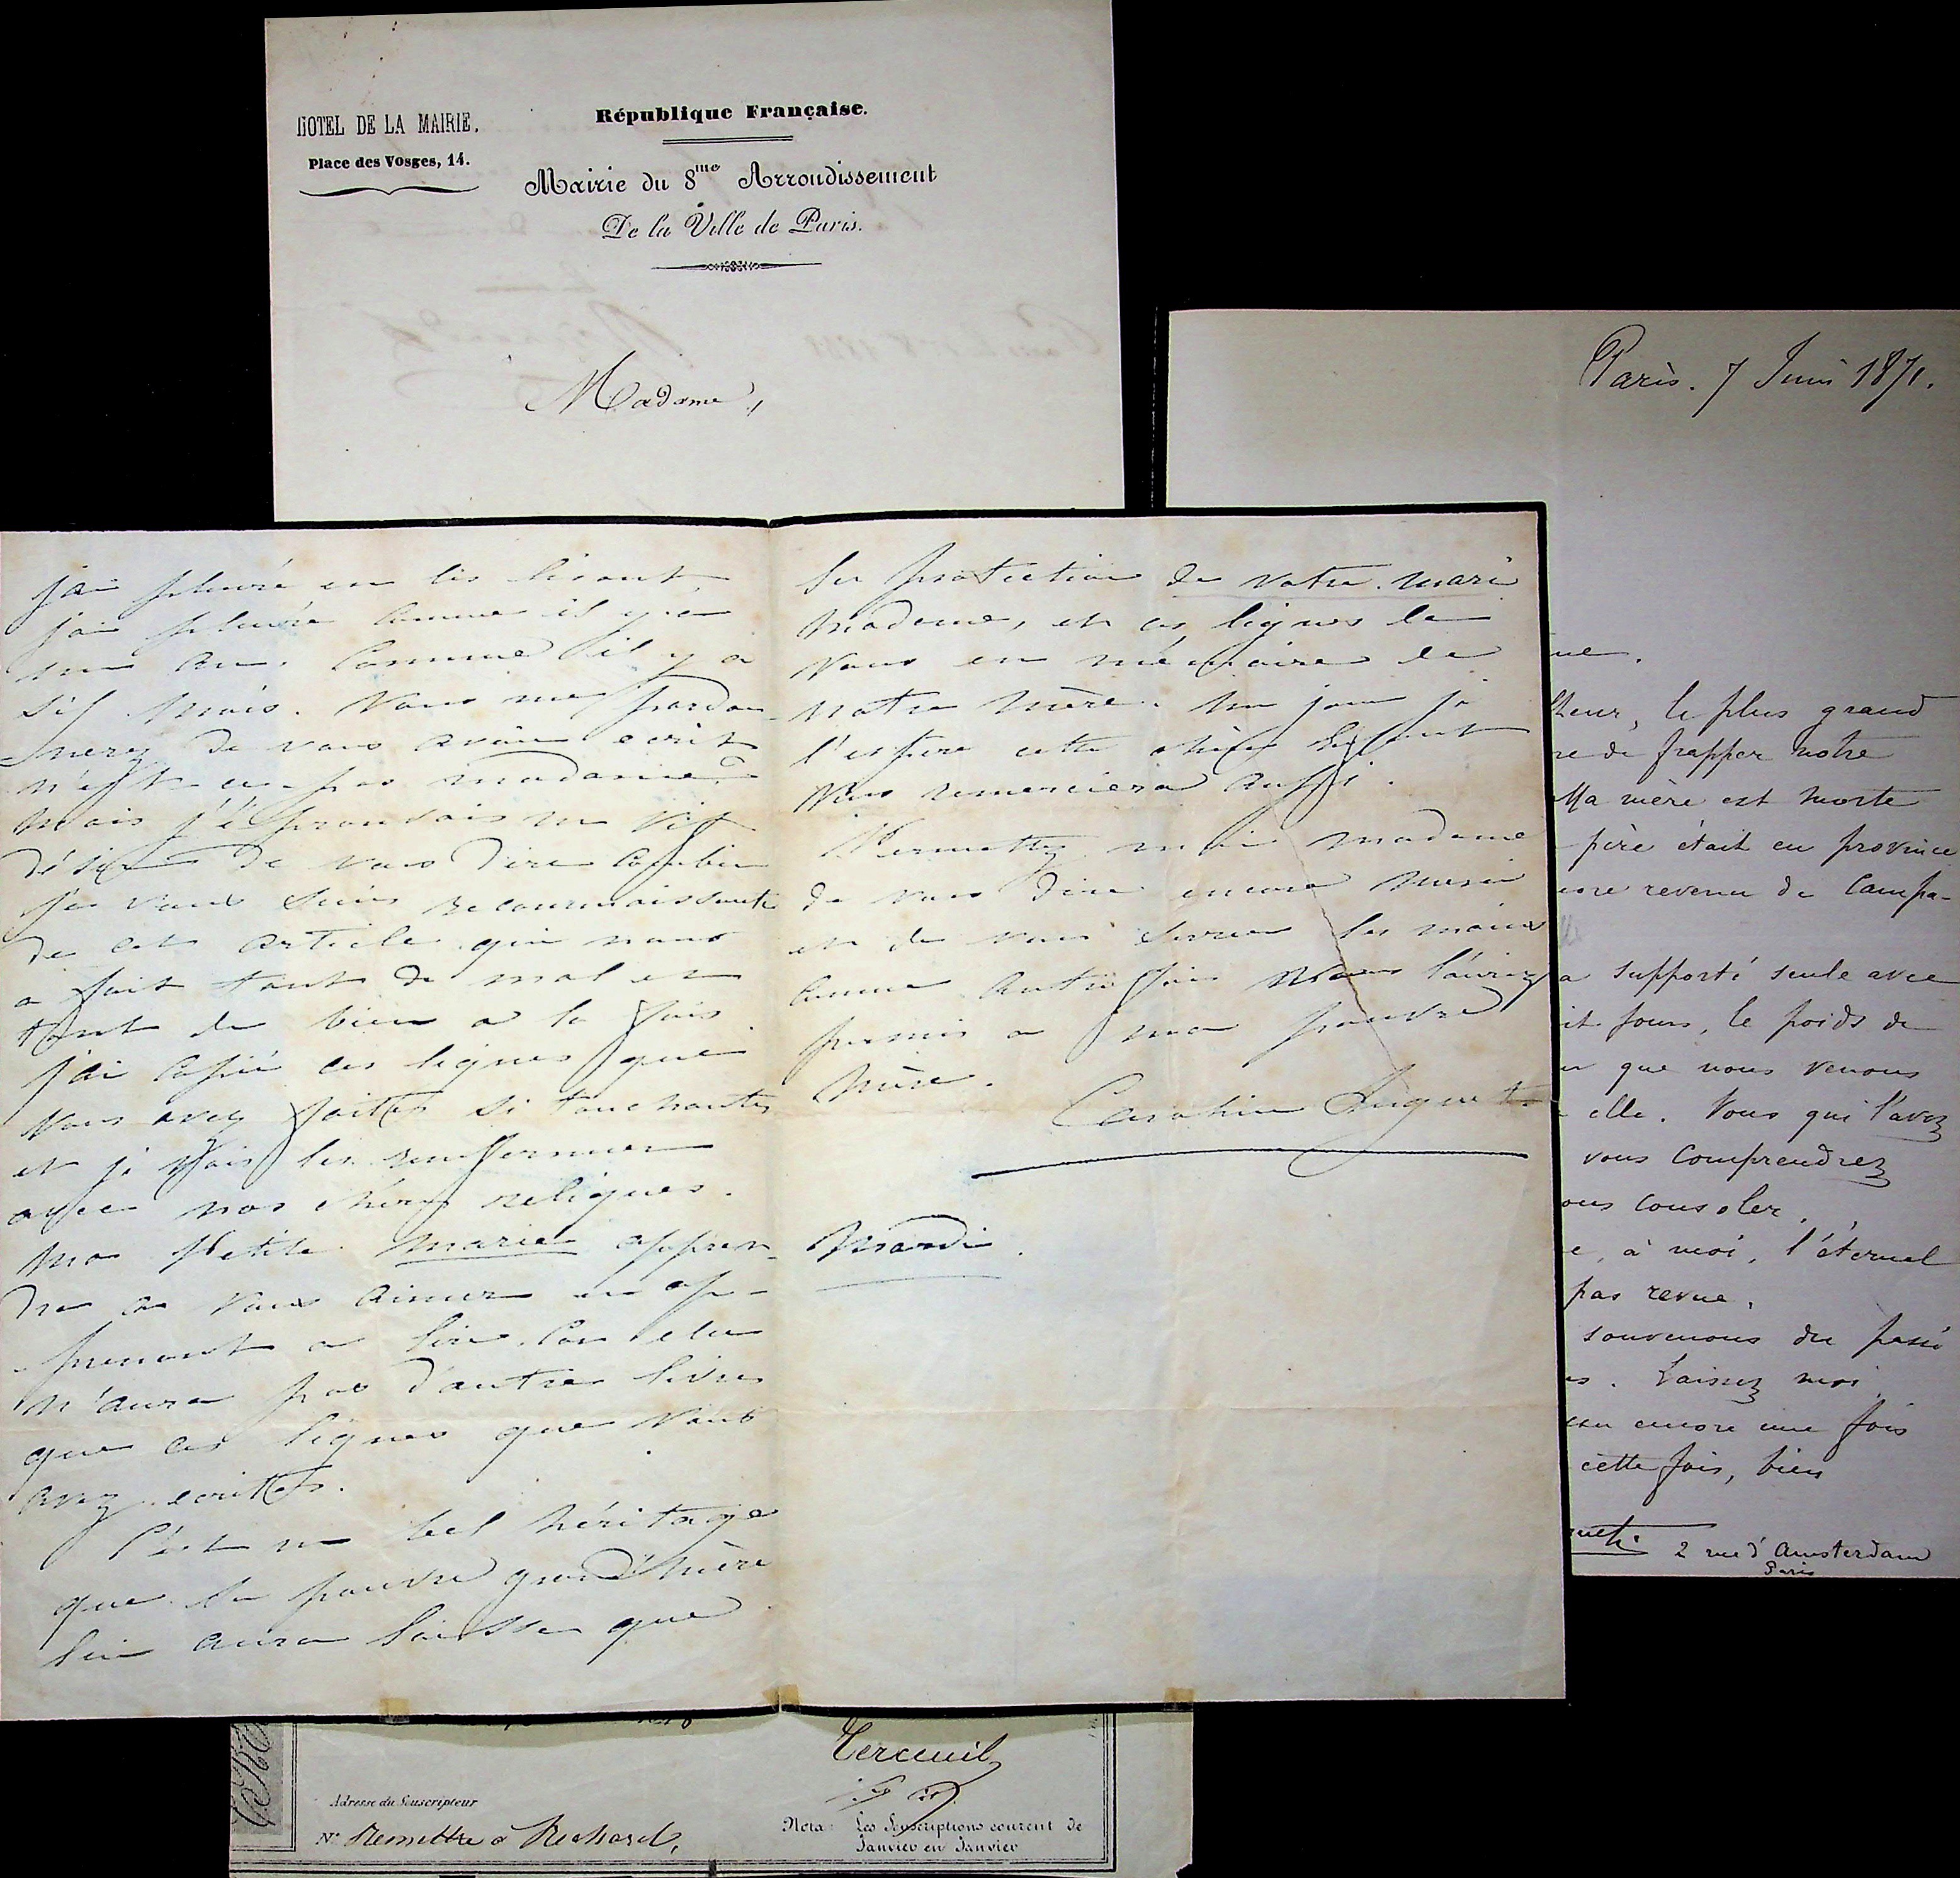 HOTEL DE LA MAIRIE.
Place des Vosges, 14.
République Française.
Mairie du 8me Arrondissement
De la Ville de Paris.
Madame,
Paris. 7 Juin 1871.
j'ai pleuré en les lisant
j'ai pleurée comme il y a
un an. Comme il y a
six mois. Vous me pardon
-nerez de vous avoir ecrit
n'est ce pas madame?
mais j'éprouvais un vif
désir de vous dire combien
je vous suis reconnaissante
de cet article qui nous
a fait tant de mal et
tant de bien a la fois
j'ai copié ces lignes que
vous avez faites si touchantes
et je vais les renfermer
avec nos chères reliques.
ma petite Marie appren-
dra a vous aimer en ap-
-prenant a lire. Car elle
n'aura pas d'autre livre
que ces lignes que vous
avez ecrites.
C'est un bel héritage
que sa pauvre grand'mère
lui aura laissée que
la protection de votre mari
Madame, et ces lignes de
vous en mémoire de
notre mère. Un jour je
l'espère cette chère
vous remerciera aussi.
Permettez moi madame
de vous dire encore merci
et de vous serrer les mains
comme autrefois vous l'aviez
permis a ma pauvre
mère.
Caroline Luguet
Mardi.
le plus grand
de frapper notre
Ma mère est morte
père était en province
revenu de Campa-
a supporté seule avec
jours, le poids de
que nous venons
elle. Vous qui l'avez
vous comprendrez
consoler.
à moi, l'éternel
pas revue.
souvenons du passé
Laissez moi
encore une fois
cette fois, bien
2 rue d'Amsterdam
Paris
Verceuil
Adresse du Souscripteur
N° Remettre à Richard,
Nota: Les Souscriptions courent de
Janvier en Janvier